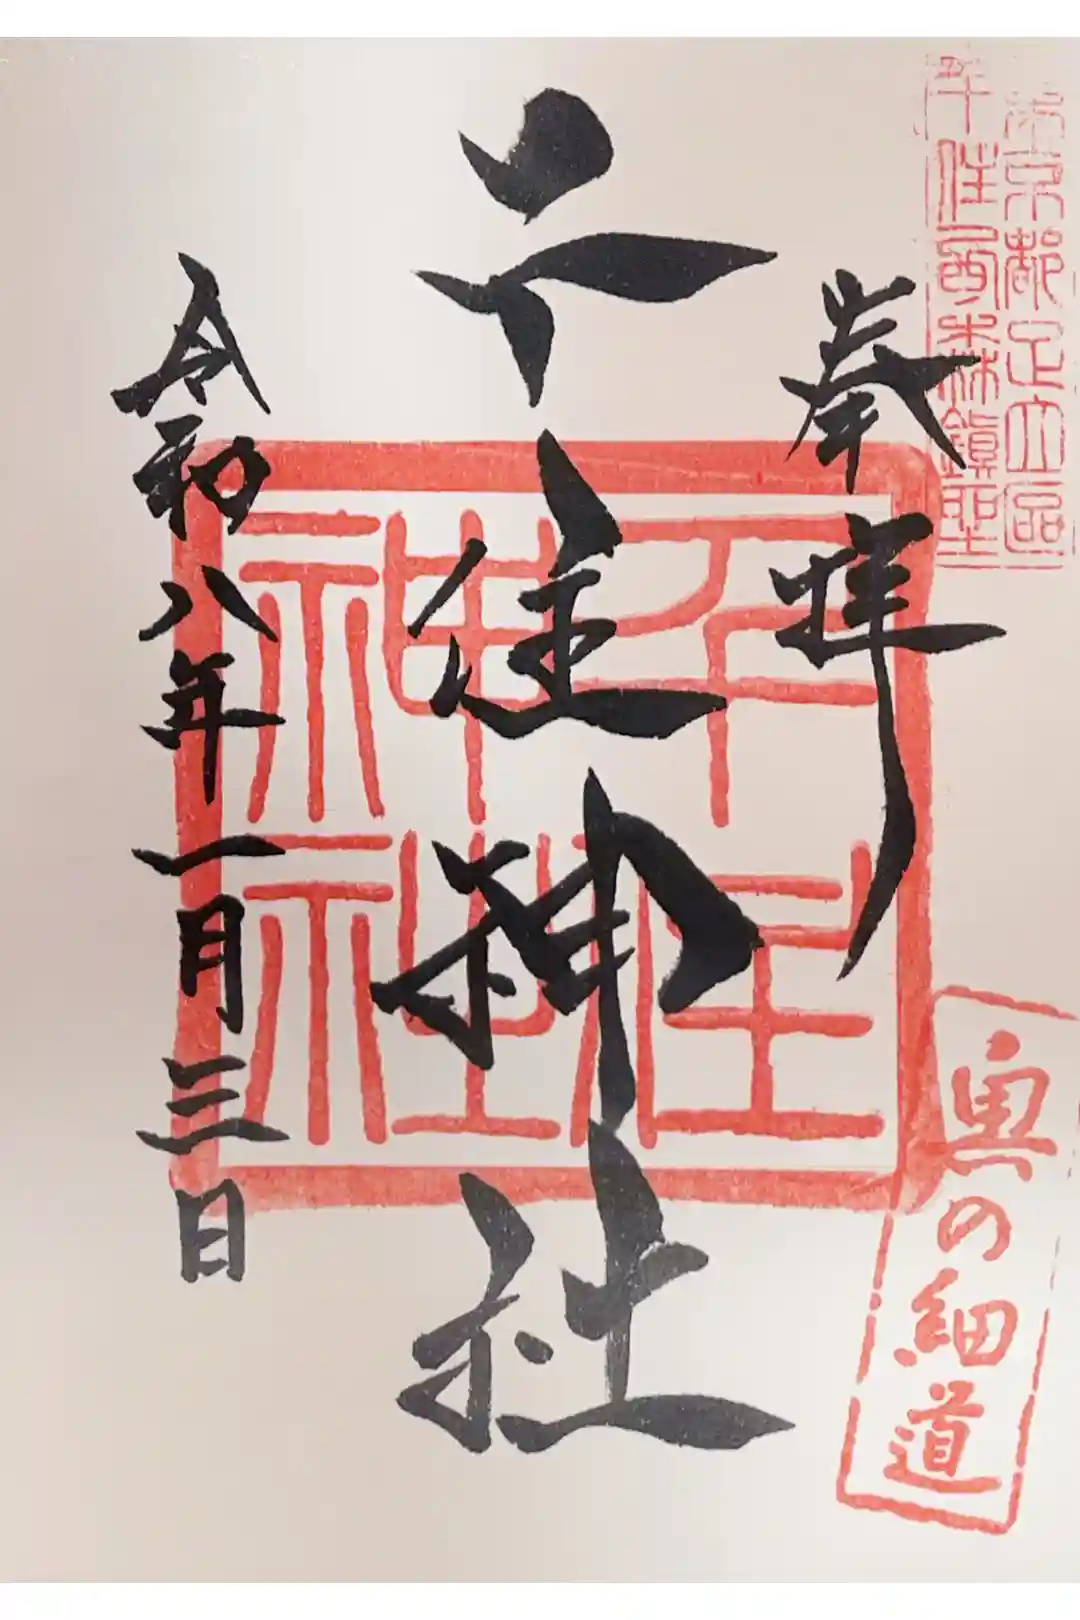 奉拝
千住神社
令和八年一月三日
東京都足立區
千住西森鎮座
千住
神社
奥の細道